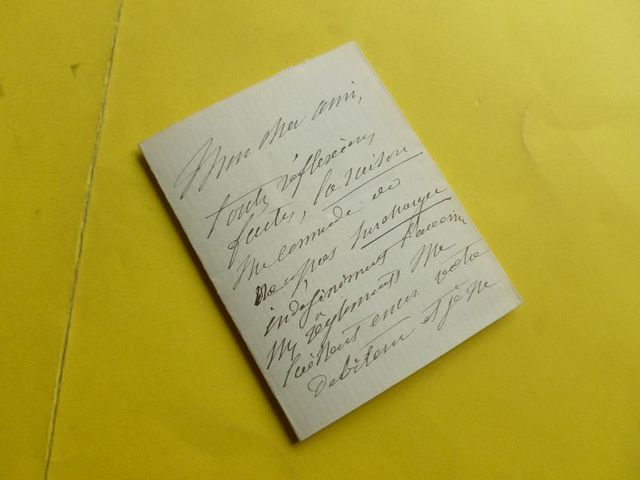 Mon cher ami,
toute réflexion
faite, la raison
me commande de
ne pas surcharger
indéfiniment l'avenir
Mes règlements me
laissent encor votre
débiteur et je ne